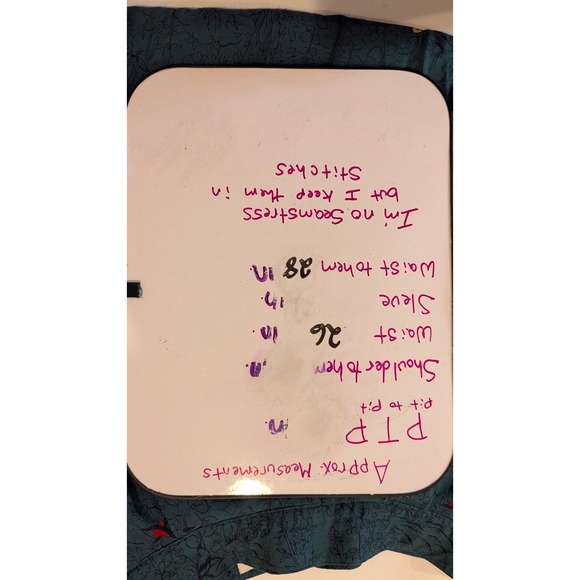 Approx. Measurements
PTP in.
Pit to Pit
Shoulder to hem in.
Waist 26 in.
Sleve in.
Waist to hem 28 in.
I'm no Seamstress
but I keep them in
Stitches